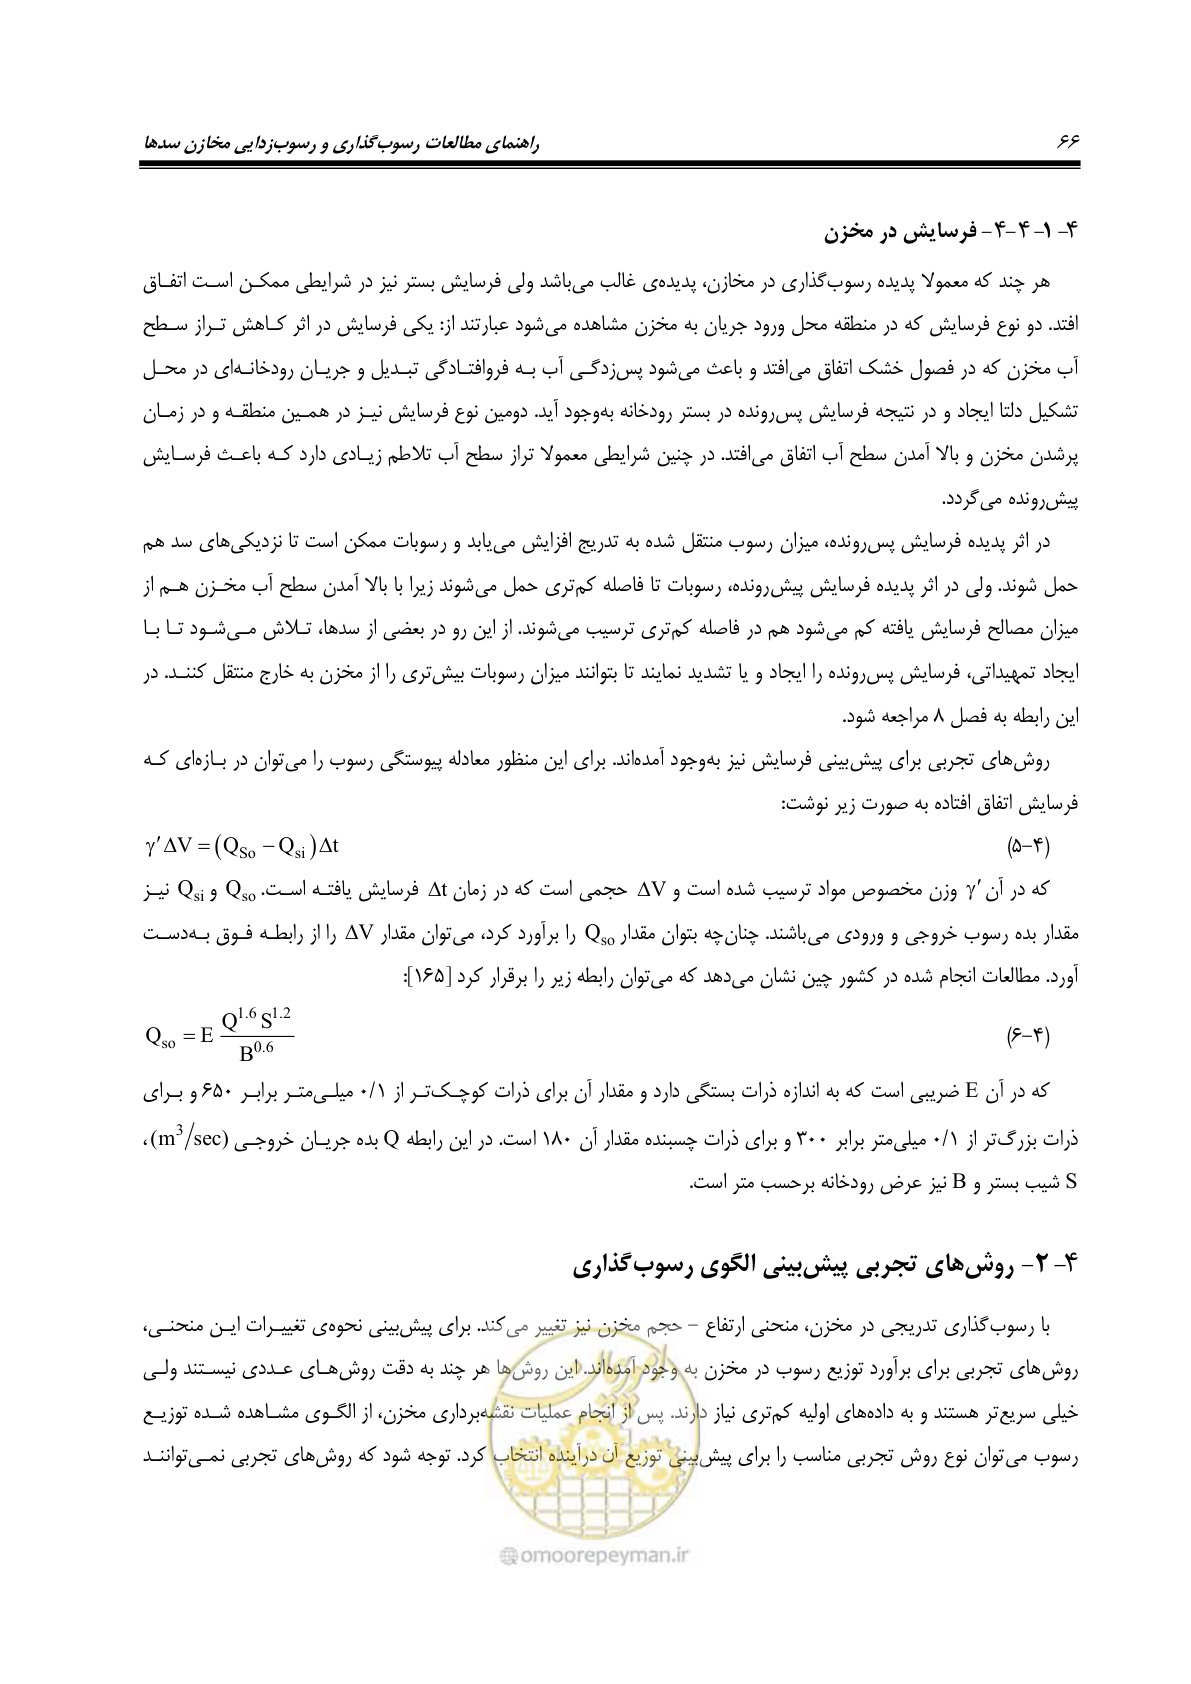 ۶۶ راهنمای مطالعات رسوب‌گذاری و رسوب‌زدایی مخازن سدها
۴-۱-۴-۴- فرسایش در مخزن
هر چند که معمولا پدیده رسوب‌گذاری در مخازن، پدیده‌ی غالب می‌باشد ولی فرسایش بستر نیز در شرایطی ممکن است اتفاق
افتد. دو نوع فرسایش که در منطقه محل ورود جریان به مخزن مشاهده می‌شود عبارتند از: یکی فرسایش در اثر کاهش تراز سطح
آب مخزن که در فصول خشک اتفاق می‌افتد و باعث می‌شود پس‌زدگی آب به فروافتادگی تبدیل و جریان رودخانه‌ای در محل
تشکیل دلتا ایجاد و در نتیجه فرسایش پس‌رونده در بستر رودخانه به‌وجود آید. دومین نوع فرسایش نیز در همین منطقه و در زمان
پرشدن مخزن و بالا آمدن سطح آب اتفاق می‌افتد. در چنین شرایطی معمولا تراز سطح آب تلاطم زیادی دارد که باعث فرسایش
پیش‌رونده می‌گردد.
در اثر پدیده فرسایش پس‌رونده، میزان رسوب منتقل شده به تدریج افزایش می‌یابد و رسوبات ممکن است تا نزدیکی‌های سد هم
حمل شوند. ولی در اثر پدیده فرسایش پیش‌رونده، رسوبات تا فاصله کم‌تری حمل می‌شوند زیرا با بالا آمدن سطح آب مخزن هم از
میزان مصالح فرسایش یافته کم می‌شود هم در فاصله کم‌تری ترسیب می‌شوند. از این رو در بعضی از سدها، تلاش می‌شود تا با
ایجاد تمهیداتی، فرسایش پس‌رونده را ایجاد و یا تشدید نمایند تا بتوانند میزان رسوبات بیش‌تری را از مخزن به خارج منتقل کنند. در
این رابطه به فصل ۸ مراجعه شود.
روش‌های تجربی برای پیش‌بینی فرسایش نیز به‌وجود آمده‌اند. برای این منظور معادله پیوستگی رسوب را می‌توان در بازه‌ای که
فرسایش اتفاق افتاده به صورت زیر نوشت:
γ′ΔV = (Q_So − Q_si)Δt (۴-۵)
که در آن γ′ وزن مخصوص مواد ترسیب شده است و ΔV حجمی است که در زمان Δt فرسایش یافته است. Q_so و Q_si نیز
مقدار بده رسوب خروجی و ورودی می‌باشند. چنان‌چه بتوان مقدار Q_so را برآورد کرد، می‌توان مقدار ΔV را از رابطه فوق به‌دست
آورد. مطالعات انجام شده در کشور چین نشان می‌دهد که می‌توان رابطه زیر را برقرار کرد [۱۶۵]:
Q_so = E Q^1.6 S^1.2 / B^0.6 (۴-۶)
که در آن E ضریبی است که به اندازه ذرات بستگی دارد و مقدار آن برای ذرات کوچک‌تر از ۰/۱ میلی‌متر برابر ۶۵۰ و برای
ذرات بزرگ‌تر از ۰/۱ میلی‌متر برابر ۳۰۰ و برای ذرات چسبنده مقدار آن ۱۸۰ است. در این رابطه Q بده جریان خروجی (m³/sec)،
S شیب بستر و B نیز عرض رودخانه برحسب متر است.
۴-۲- روش‌های تجربی پیش‌بینی الگوی رسوب‌گذاری
با رسوب‌گذاری تدریجی در مخزن، منحنی ارتفاع – حجم مخزن نیز تغییر می‌کند. برای پیش‌بینی نحوه‌ی تغییرات این منحنی،
روش‌های تجربی برای برآورد توزیع رسوب در مخزن به وجود آمده‌اند. این روش‌ها هر چند به دقت روش‌های عددی نیستند ولی
خیلی سریع‌تر هستند و به داده‌های اولیه کم‌تری نیاز دارند. پس از انجام عملیات نقشه‌برداری مخزن، از الگوی مشاهده شده توزیع
رسوب می‌توان نوع روش تجربی مناسب را برای پیش‌بینی توزیع آن درآینده انتخاب کرد. توجه شود که روش‌های تجربی نمی‌توانند
@omoorepeyman.ir